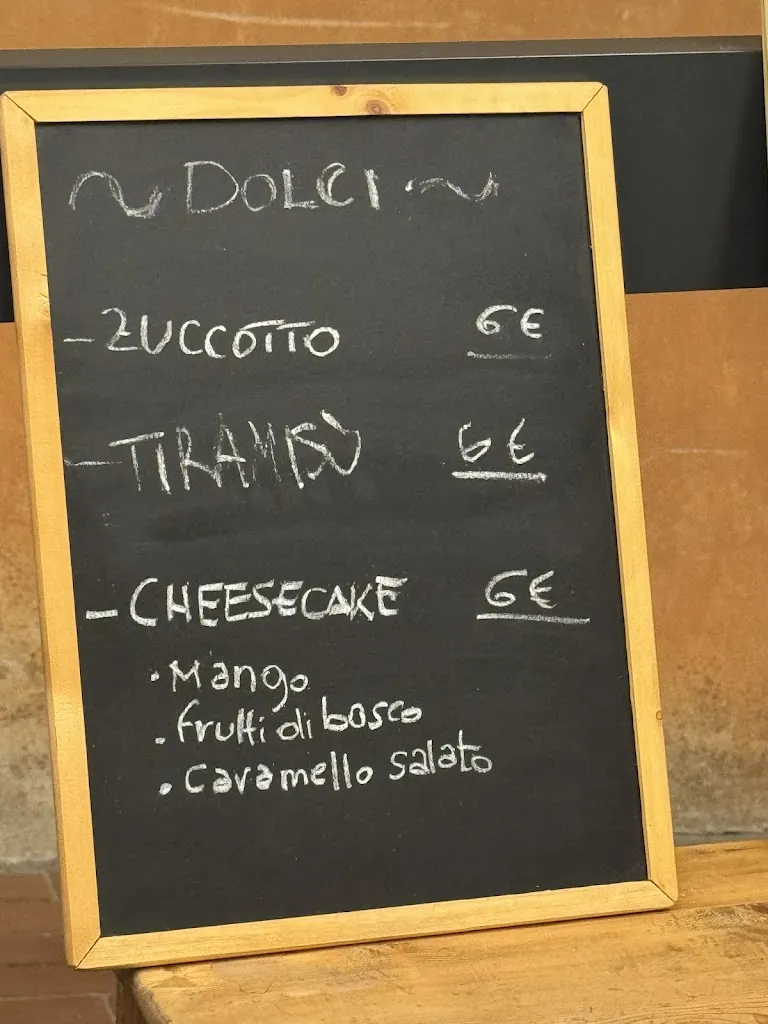 ~ DOLCI ~
- ZUCCOTTO 6€
- TIRAMISÙ 6€
- CHEESECAKE 6€
• Mango
• frutti di bosco
• Caramello salato